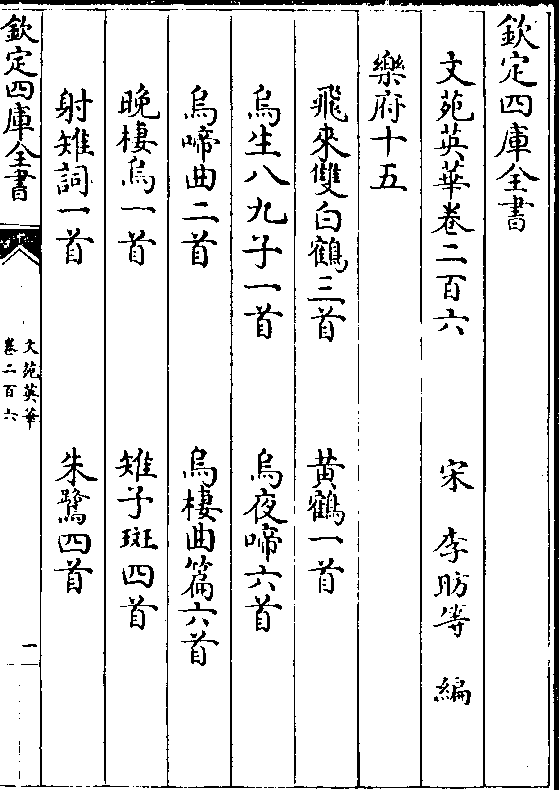 欽定四庫全書
文苑英華卷二百六　宋　李昉等　編
樂府十五
飛來雙白鶴三首　黃鶴一首
烏生八九子一首　烏夜啼六首
烏啼曲二首　烏棲曲篇六首
晚棲烏一首　雉子斑四首
射雉詞一首　朱鷺四首
欽定四庫全書
文苑英華
卷二百六
一